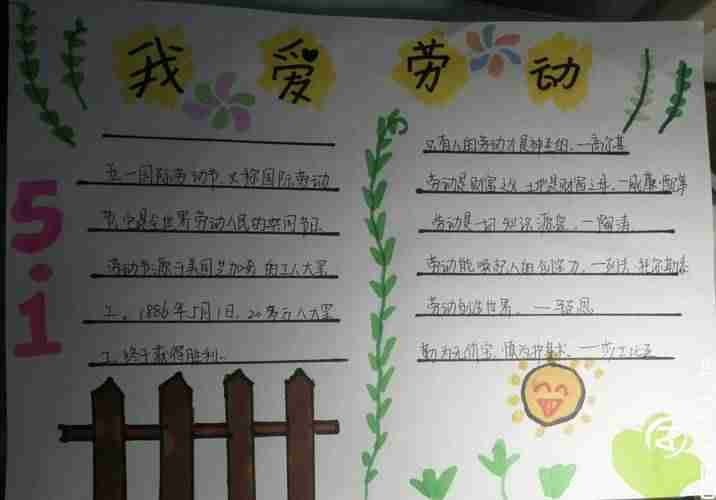 我爱劳动
5.1
五一国际劳动节又称国际劳动
节,它是全世界劳动人民的共同节日
劳动节源于美国芝加哥的工人大罢
工。1886年5月1日,20多万人大罢
工,终于获得胜利。
只有人的劳动才是神圣的。—高尔基
劳动是财富之父,土地是财富之母。—威廉·配第
劳动是一切知识源泉。—陶铸
劳动能唤起人的创造力。—列夫·托尔斯泰
劳动创造世界。—马克思
勤为无价宝,慎为护身术。—